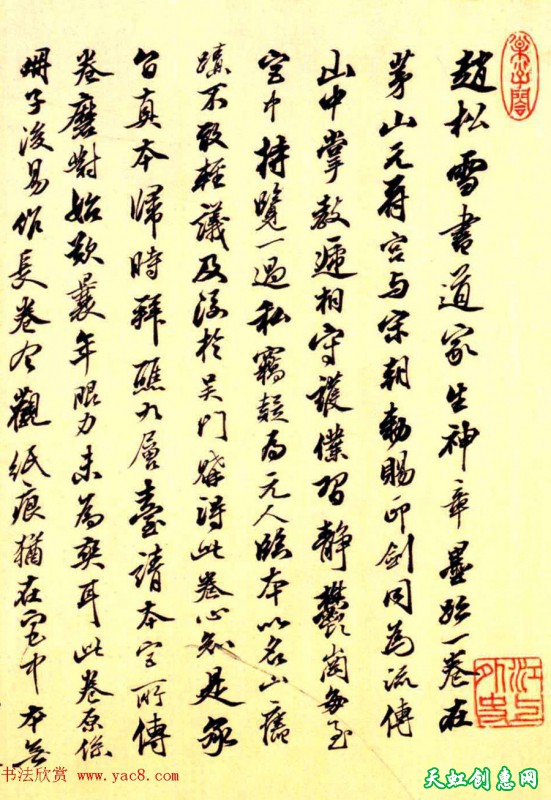 趙松雪書道家生神章墨跡一卷在
茅山元符宮与宋朝勅賜印劍同為流傳
山中掌教遞相守護僕習靜鬱岡每至
宮中持覽一過私竊疑為元人臨本以名山舊
蹟不敢輕議及後於吳門購得此卷心知是承
旨真本歸時拜醮九層臺請本宮所傳
卷磨對始歎曩年眼力未為爽耳此卷原係
冊子後易作長卷今觀紙痕猶在宮中本無
江上外史
书法欣赏 www.yac8.com
天虹创惠网